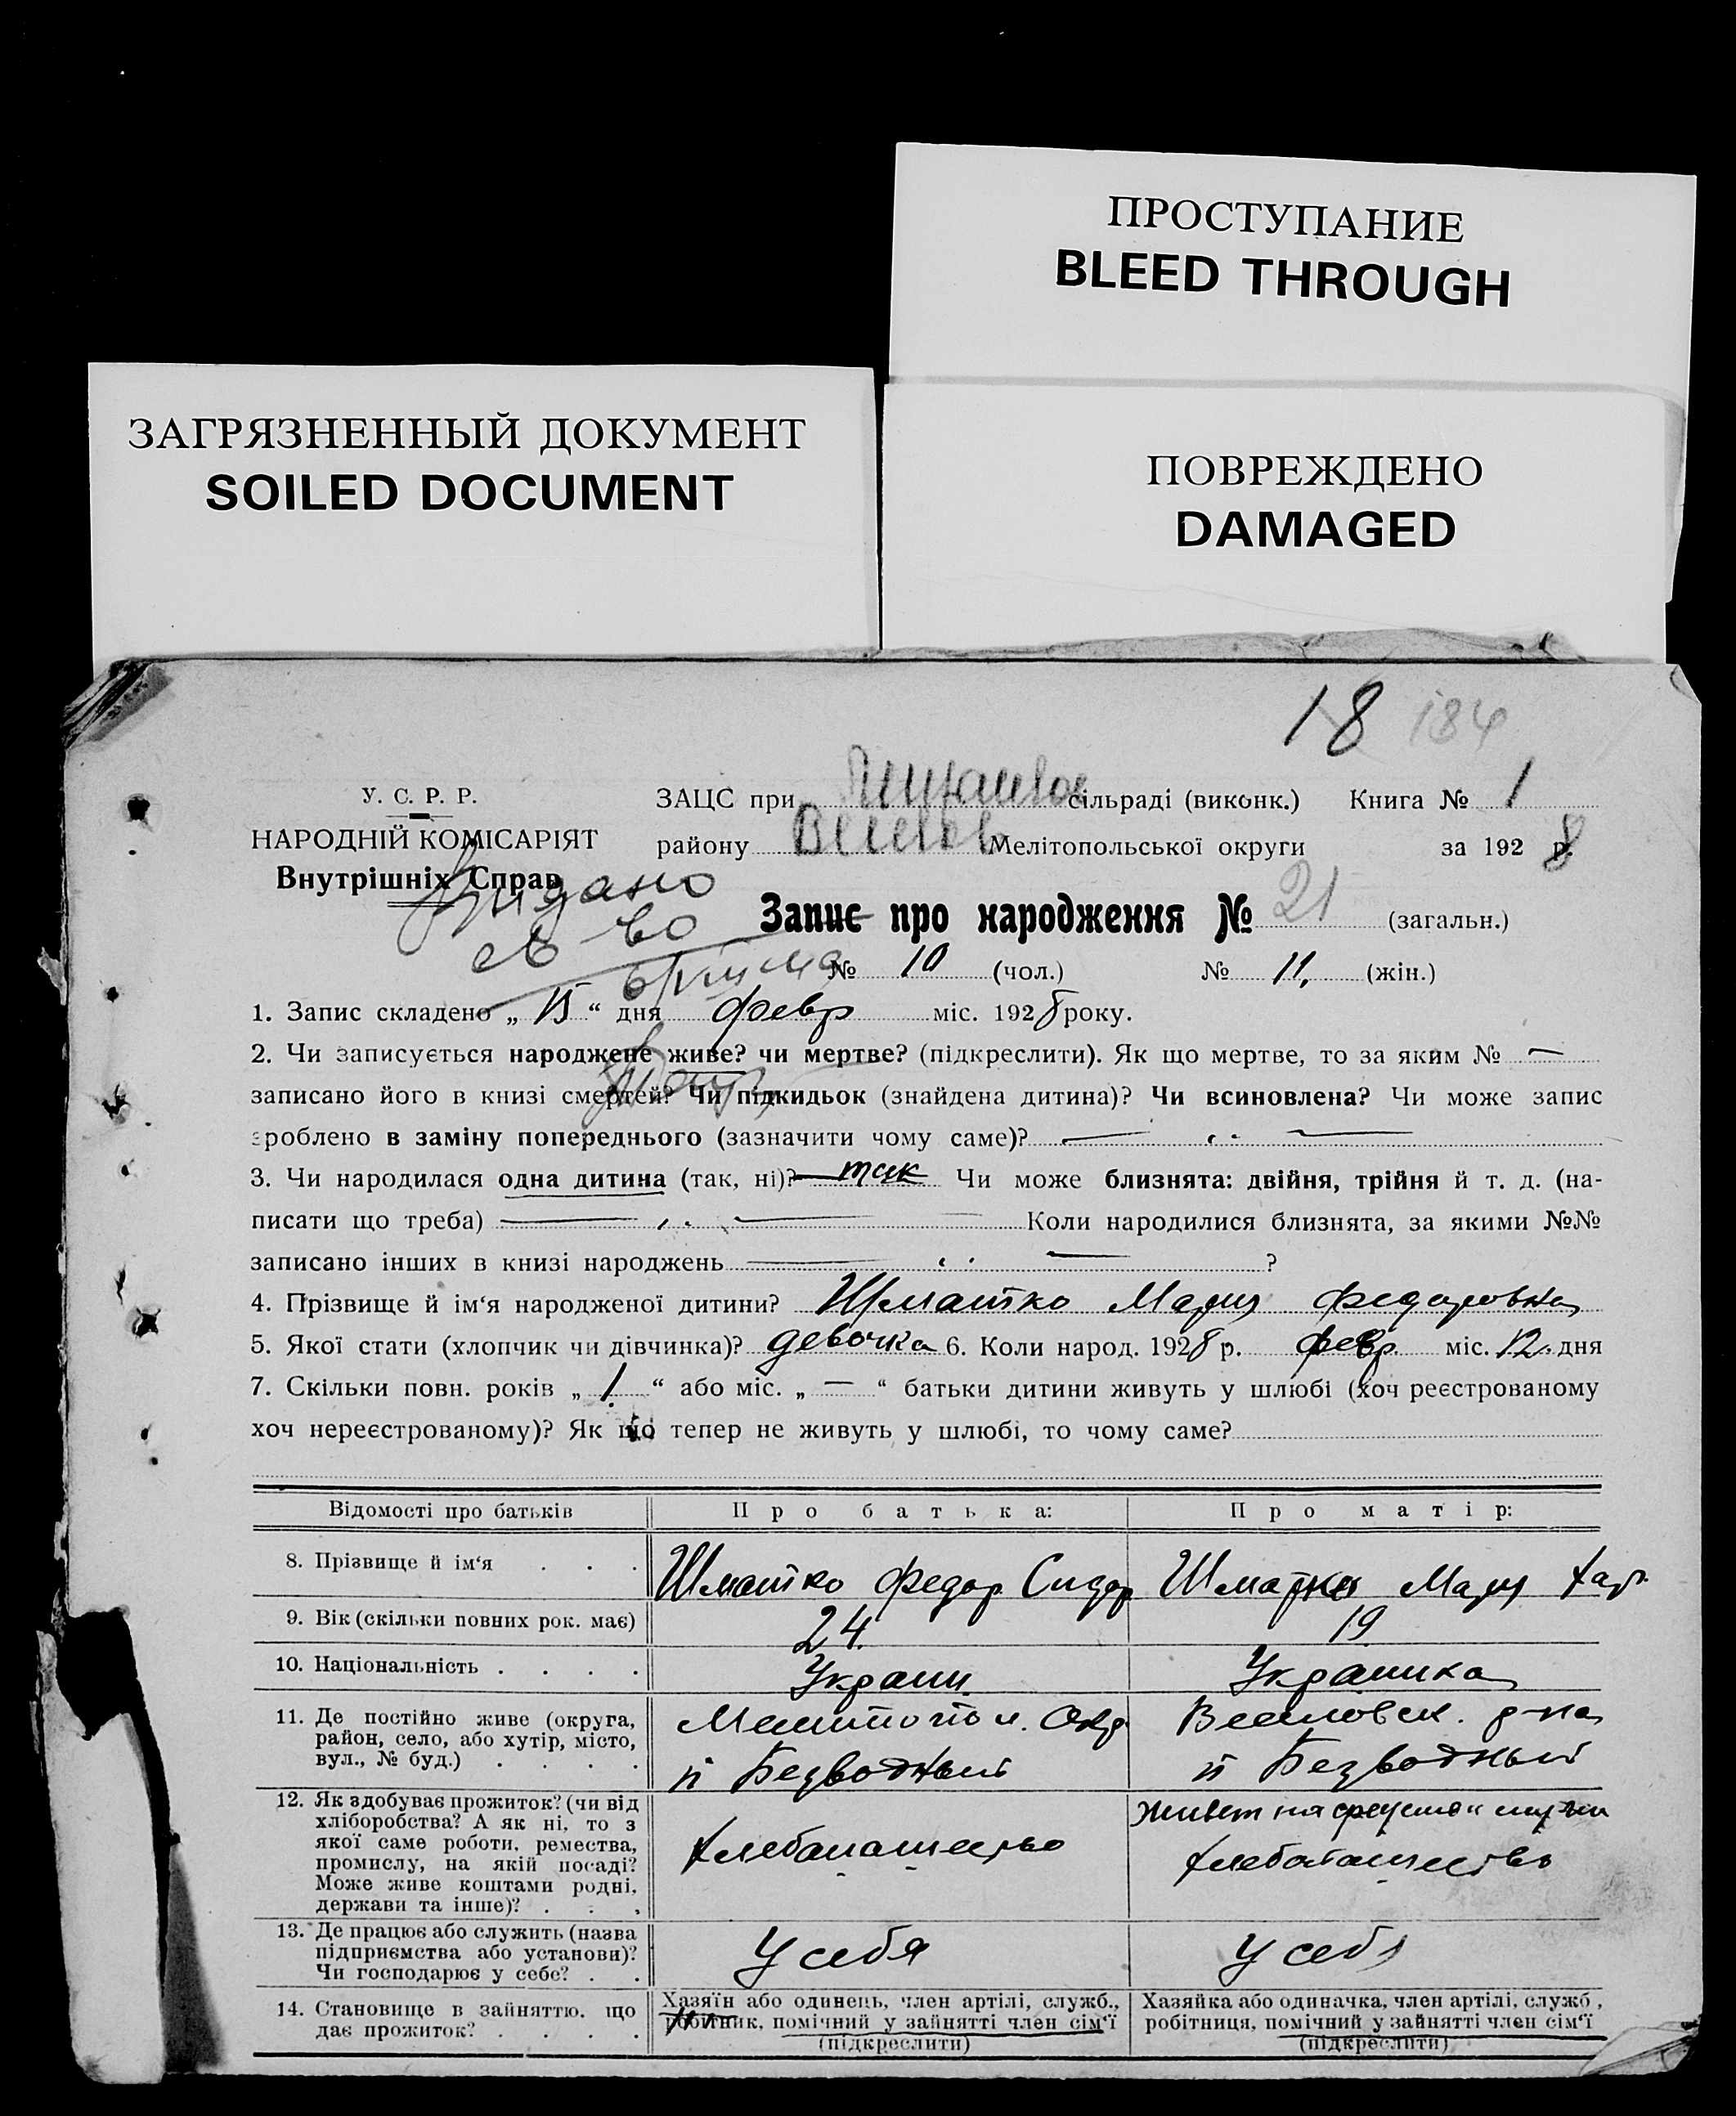 ПРОСТУПАНИЕ
BLEED THROUGH
ЗАГРЯЗНЕННЫЙ ДОКУМЕНТ
SOILED DOCUMENT
ПОВРЕЖДЕНО
DAMAGED
18 184
У. С. Р. Р.
НАРОДНІЙ КОМІСАРІЯТ
Внутрішніх Справ
ЗАЦС при сільраді (виконк.) Книга № 1
району Веселов Мелітопольської округи за 1928 р.
Видано
св-во
Запис про народження № 21 (загальн.)
№ 10 (чол.) № 11, (жін.)
1. Запис складено „ 15 “ дня февр міс. 1928 року.
2. Чи записується народжене живе? чи мертве? (підкреслити). Як що мертве, то за яким № —
записано його в книзі смертей? Чи підкидьок (знайдена дитина)? Чи всиновлена? Чи може запис
зроблено в заміну попереднього (зазначити чому саме)?
3. Чи народилася одна дитина (так, ні)? так Чи може близнята: двійня, трійня й т. д. (на-
писати що треба) Коли народилися близнята, за якими №№
записано інших в книзі народжень ?
4. Прізвище й ім‘я народженої дитини? Шматко Мария Федоровна
5. Якої стати (хлопчик чи дівчинка)? девочка 6. Коли народ. 1928 р. февр. міс. 12. дня
7. Скільки повн. років „ 1 “ або міс. „ — “ батьки дитини живуть у шлюбі (хоч реєстрованому
хоч нереєстрованому)? Як що тепер не живуть у шлюбі, то чому саме?
Відомості про батьків Про батька: Про матір:
8. Прізвище й ім‘я . . . Шматко Федор Сидор Шматко Мария Хар.
9. Вік (скільки повних рок. має) 24. 19
10. Національність . . . . Украин. Украинка
11. Де постійно живе (округа,
район, село, або хутір, місто,
вул., № буд.) . . . .
Мелитопол. Окр
п Безводный
Веселовск. р-на
п Безводный
12. Як здобуває прожиток? (чи від
хліборобства? А як ні, то з
якої саме роботи, ремества,
промислу, на якій посаді?
Може живе коштами родні,
держави та інше)? . . .
хлебопашество
живет на средства мужа
хлебопашество
13. Де працює або служить (назва
підприємства або установи)?
Чи господарює у себе? . .
У себя У себя
14. Становище в зайняттю, що
дає прожиток? . . . .
Хазяїн або одинець, член артілі, служб.,
робітник, помічний у зайнятті член сім‘ї
(підкреслити)
Хазяйка або одиначка, член артілі, служб.,
робітниця, помічний у зайнятті член сім‘ї
(підкреслити)